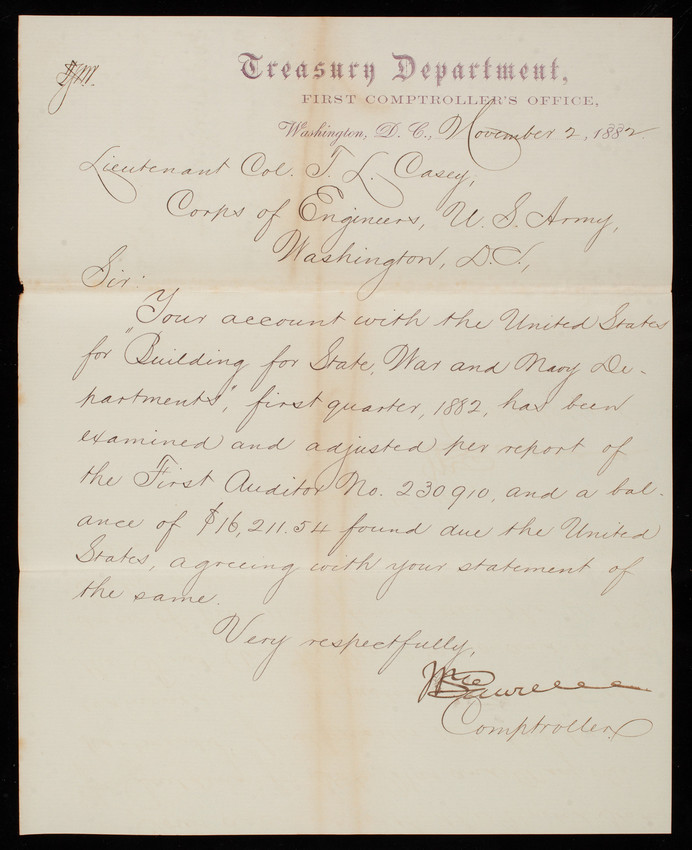 Treasury Department,
FIRST COMPTROLLER'S OFFICE,
Washington, D. C., November 2, 1882.
Lieutenant Col. T. L. Casey,
Corps of Engineers, U. S. Army,
Washington, D.C.,
Sir:
Your account with the United States
for "Building for State, War and Navy De-
partments", first quarter, 1882, has been
examined and adjusted per report of
the First Auditor No. 230910, and a bal-
ance of $16,211.54 found due the United
States, agreeing with your statement of
the same.
Very respectfully,
Wm Lawrence
Comptroller.